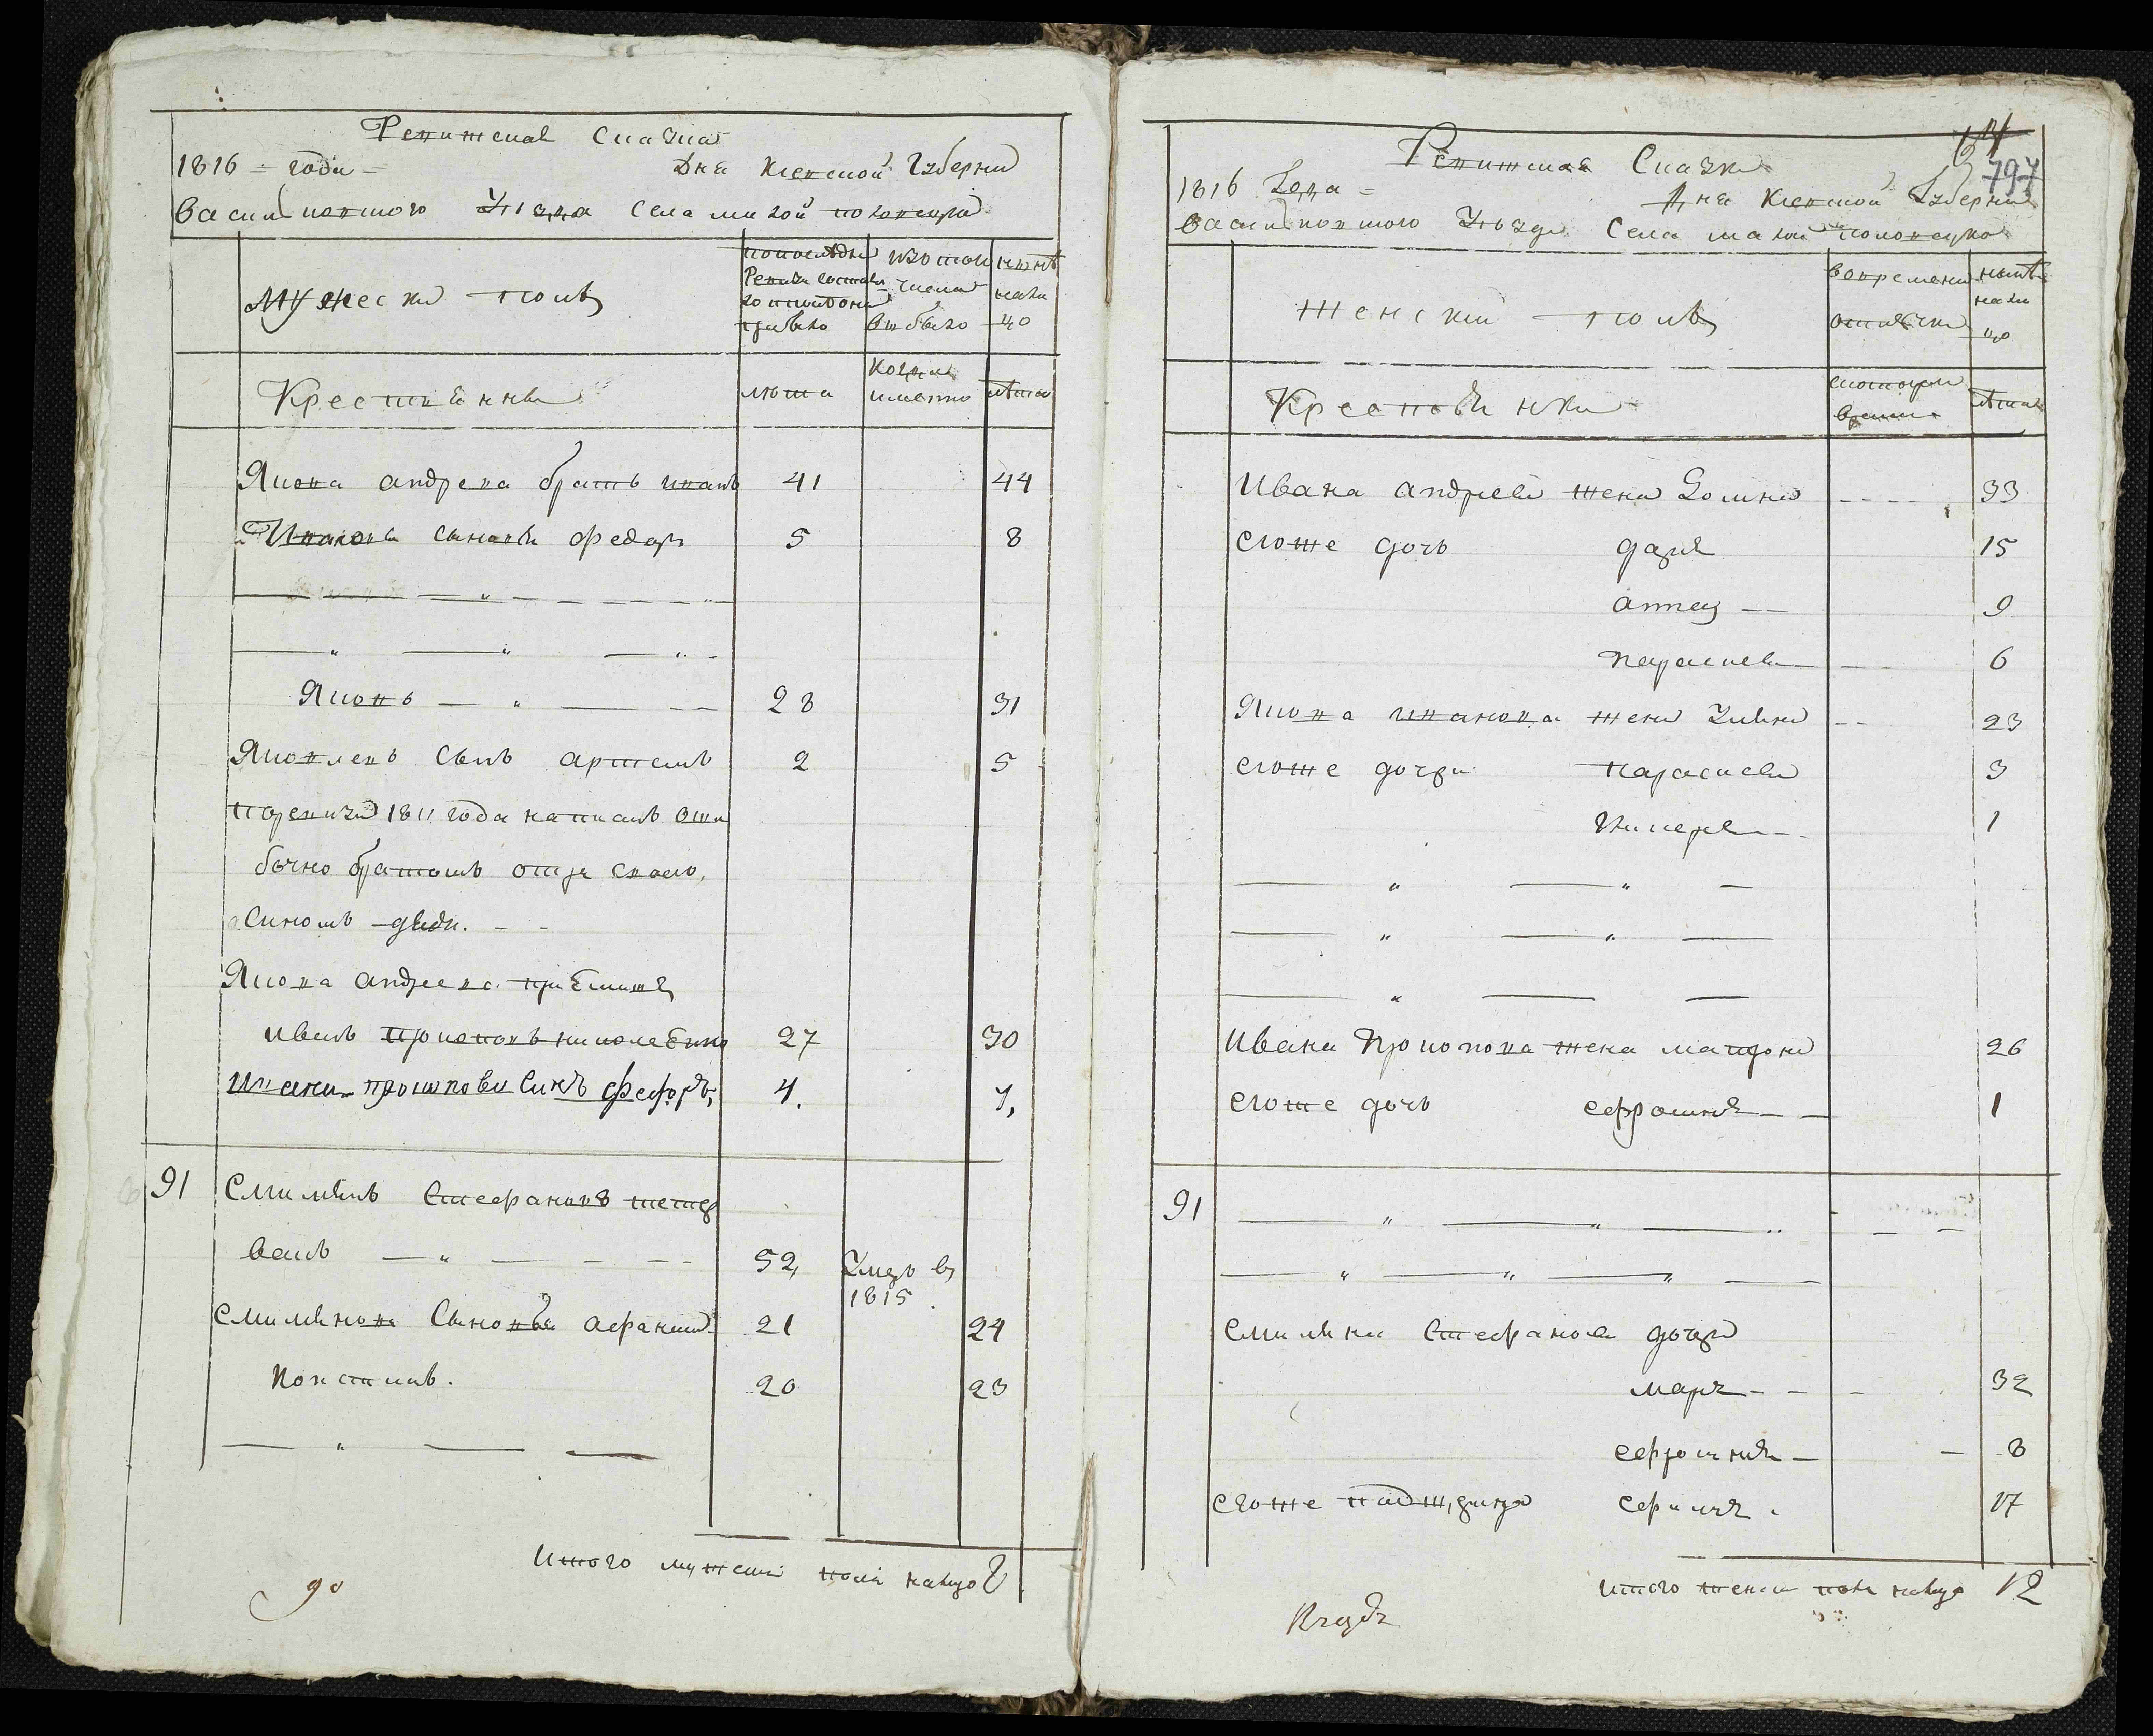 Ревижская Сказка
1816 = года =
Дня Киевской Губернии
Васильковского Уезда Села малой половецкой
Мужеска полъ
по последней Ревизии состояло и после оной прибыло
изъ того числа выбыло
ныне налицо
Крестьяне
лета
когда именно
лета
Якова андреева братъ иванъ 41 44
Ивановы сыновья федоръ 5 8
Яковъ 28 31
Яковлевъ сынъ артемъ 2 5
по ревизии 1811 года написанъ оши
бочно братомъ отца своего,
а сыномъ деда.
Якова андреева приймытъ
иванъ прокоповъ николаенко 27 30
Ивана прокопова синъ федоръ, 4. 7,
91 Емилянъ Стефановъ тетер
ванъ 52, Умеръ въ
1815
Емилянова Сыновья афанасий 21 24
Констинъ. 20 23
Итого мужеска пола налицо 8
90
14
797
Ревижская Сказка
1816 Года =
Дня Киевской Губернии
Васильковского Уезда Села малой половецкой
Женский полъ
во временной отлучке
ныне налицо
Крестьянки
с которого времени
лета
Ивана андреева жена Домна 33
егоже дочь даря 15
анна 9
параскева 6
Якова иванова жена Улияна 23
егоже дочери параскева 3
Гликерия 1
Ивана Прокопова жена матрона 26
егоже дочь ефросиния 1
91
Емиляна Стефанова дочери
мария 32
ефросиния 8
егоже падчерица ефимия 17
итого женска пола налицо 12